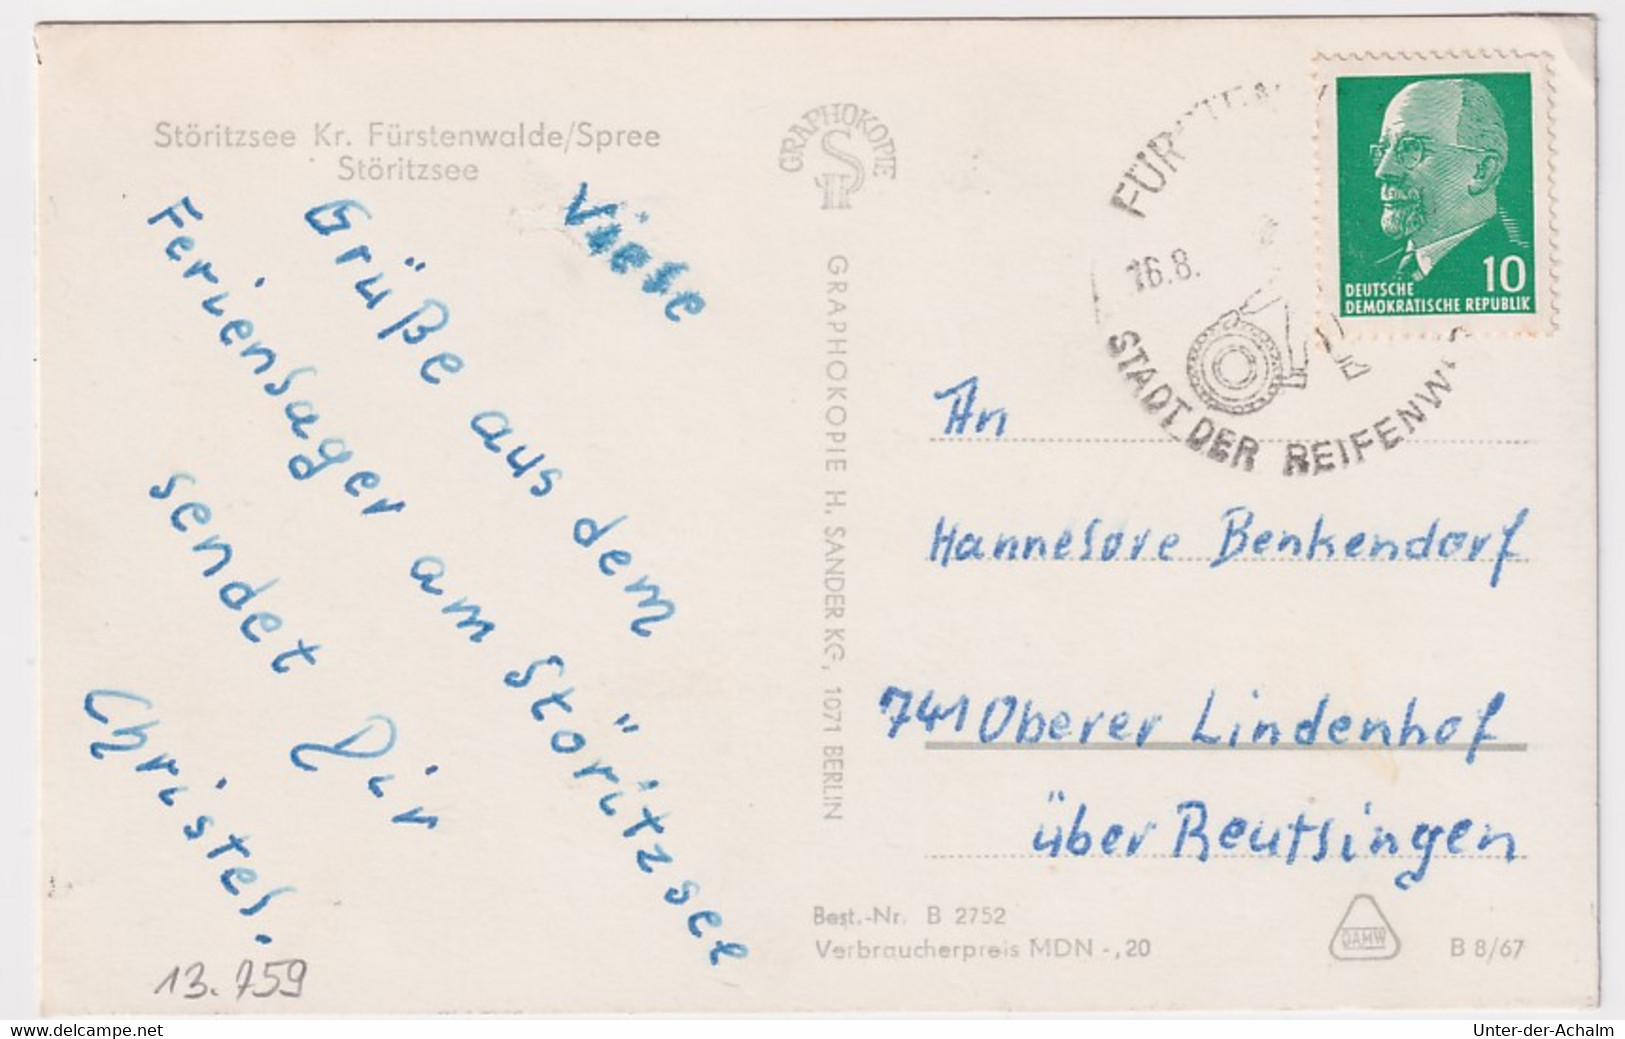 Störitzsee Kr. Fürstenwalde/Spree
Störitzsee
Viele
Grüße aus dem
Ferienlager am Störitzsee
sendet Dir
Christel.
13.759
GRAPHOKOPIE
GRAPHOKOPIE H. SANDER KG, 1071 BERLIN
16.8.
STADT DER REIFENW
10
DEUTSCHE
DEMOKRATISCHE REPUBLIK
An
Hannelore Benkendorf
741 Oberer Lindenhof
über Reutlingen
Best.-Nr. B 2752
Verbraucherpreis MDN -,20
DAMW
B 8/67
www.delcampe.net
Unter-der-Achalm